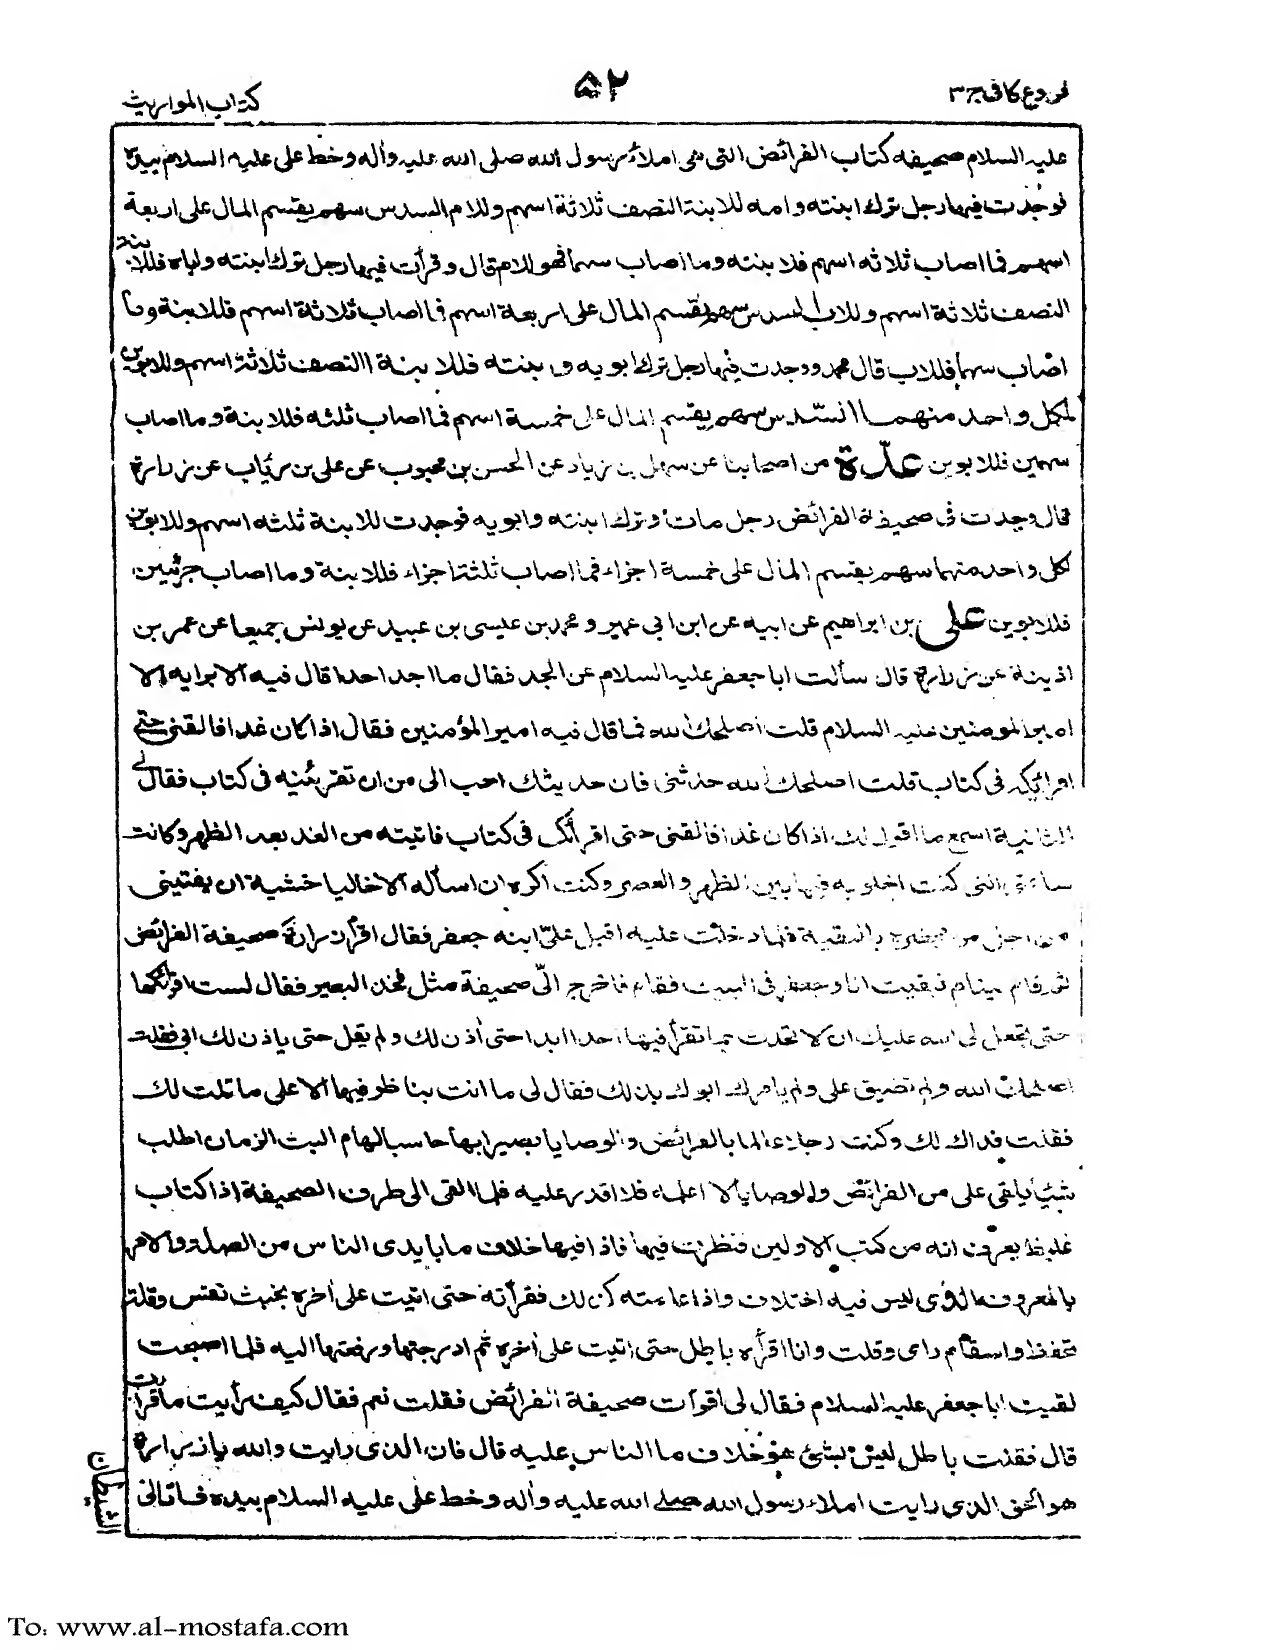 فروع کافی ج۳
۵۲
کتاب المواریث
علیه السلام صحیفه کتاب الفرائض التی هی املاء رسول الله صلی الله علیه واله وخط علی علیه السلام بیده
فوجدت فیها رجل ترك ابنته وامه للابنة النصف ثلاثة اسهم وللام السدس سهم یقسم المال علی اربعة
اسهم فما اصاب ثلاثه اسهم فلابنته وما اصاب سهما فهو للام قال وقرأت فیها رجل ترك ابنته واباه فللابنة
النصف ثلاثة اسهم وللاب السدس سهم یقسم المال علی اربعة اسهم فما اصاب ثلاثة اسهم فللابنة وما
اصاب سهما فللاب قال محمد ووجدت فیها رجل ترك ابویه وابنته فللابنة النصف ثلاثة اسهم وللابوین
لكل واحد منهما السّدس سهم یقسم المال علی خمسة اسهم فما اصاب ثلثه فللابنة وما اصاب
سهمین فللابوین عدّة من اصحابنا عن سهل بن زیاد عن الحسن بن محبوب عن علی بن رئاب عن زرارة
قال وجدت فی صحیفة الفرائض رجل مات وترك ابنته وابویه فوجدت للابنة ثلثه اسهم وللابوین
لكل واحد منهما سهم یقسم المال علی خمسة اجزاء فما اصاب ثلثة اجزاء فللابنة وما اصاب جزئین
فللابوین علی بن ابراهیم عن ابیه عن ابن ابی عمیر و محمد بن عیسی بن عبید عن یونس جمیعا عن عمر بن
اذینة عن زرارة قال سألت ابا جعفر علیه السلام عن الجد فقال ما اجد احدا قال فیه الا برایه الا
امیر المومنین علیه السلام قلت اصلحك الله فما قال فیه امیر المؤمنین فقال اذا كان غدا فالقنی حتی
اقرائكه فی كتاب قلت اصلحك الله حدثنی فان حدیثك احب الی من ان تقرئنیه فی كتاب فقال لی
الثانیة اسمع ما اقول لك اذا كان غدا فالقنی حتی اقرأك فی كتاب فاتیته من الغد بعد الظهر وكانت
ساعتی التی كنت اخلو به فیها بین الظهر والعصر وكنت اكره ان اسأله الا خالیا خشیة ان یفتینی
من اجل من یحضره بالتقیة فلما دخلت علیه اقبل علیّ ابنه جعفر فقال اقرأ زرارة صحیفة الفرائض
ثم قام لینام فبقیت انا وجعفر فی البیت فقام فاخرج الیّ صحیفة مثل فخذ البعیر فقال لست اقرئكها
حتی تجعل لی الله علیك ان لا تحدث بما تقرأ فیها احدا ابدا حتی أذن لك ولم یقل حتی یاذن لك ابی فقلت
اصلحك الله ولم تضیق علی ولم یامرك ابوك بذلك فقال لی ما انت بناظر فیها الا علی ما قلت لك
فقلت فذاك لك وكنت رجلا عالما بالفرائض والوصایا بصیرا بها حاسبا لها م البث الزمان اطلب
شیئا یلقی علی من الفرائض والوصایا لا اعلمه فلا اقدر علیه فلما القی الی طرف الصحیفة اذا كتاب
غلیظ یعرف انه من كتب الاولین فنظرت فیها فاذا فیها خلاف ما بایدی الناس من الصلة والامر
بالمعروف الذی لیس فیه اختلاف واذا عامته كذلك فقرأته حتی اتیت علی أخره بخبث نفس وقلة
تحفظ واسقام رای وقلت وانا اقرأه باطل حتی اتیت علی أخره ثم ادرجتها ورفعتها الیه فلما اصبحت
لقیت ابا جعفر علیه السلام فقال لی اقرأت صحیفة الفرائض فقلت نعم فقال كیف رأیت ما قرأت
قال فقلت باطل لیس بشئ هو خلاف ما الناس علیه قال فان الذی رایت والله یا زرارة
هو الحق الذی رایت املاء رسول الله صلی الله علیه وأله وخط علی علیه السلام بیده فاتانی
الشیطان
To: www.al-mostafa.com